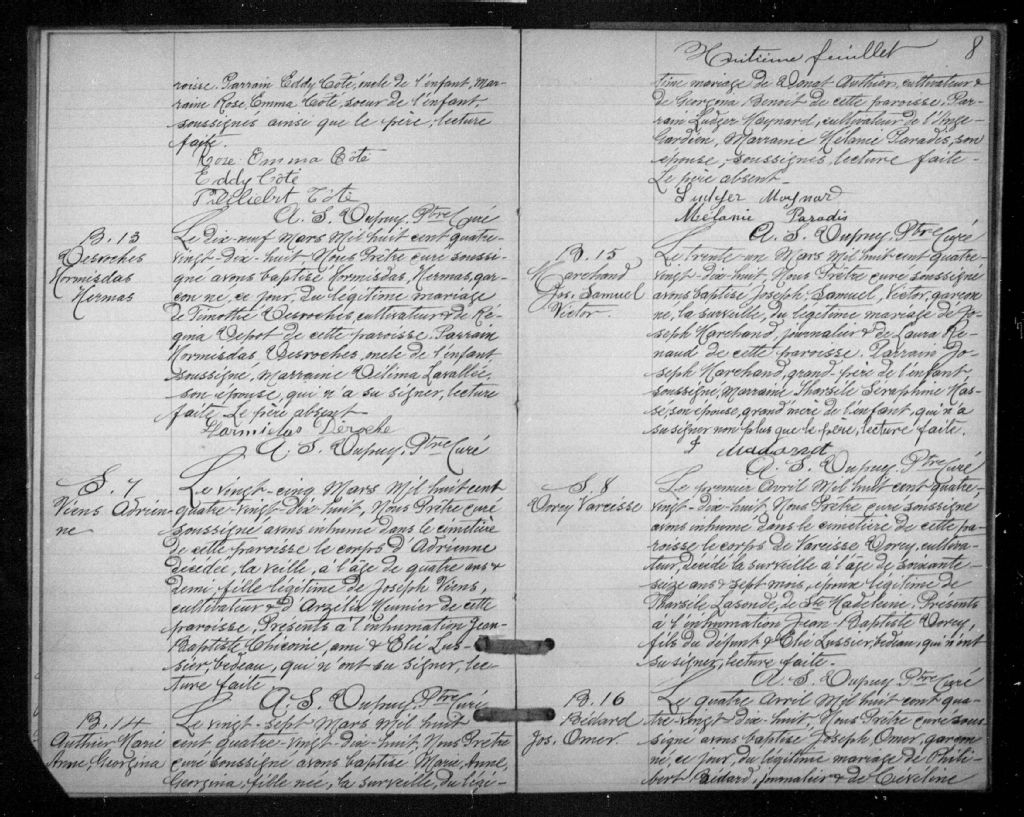 roisse. Parrain Eddy Côté, oncle de l'enfant, Mar-
raine Rose, Emma Côté, soeur de l'enfant,
soussignés ainsi que le père; lecture
faite.
Rose Emma Côté
Eddy Côté
Côté
A. S. Dupuy, Ptre Curé
B. 13
Desroches
Hormisdas
Hermas
Le dix-neuf Mars Mil huit cent quatre-
vingt-dix-huit, Nous Prêtre curé soussi-
gné avons baptisé Hormisdas, Hermas, gar-
çon né, ce jour, du légitime mariage
de Timothé Desroches, cultivateur & de Ré-
gina Depot de cette paroisse. Parrain
Hormisdas Desroches, oncle de l'enfant
soussigné, Marraine Délima Lavallée,
son épouse, qui n'a su signer, lecture
faite. Le père absent
Deroche
A. S. Dupuy, Ptre Curé
S. 7
Viens Adrien-
ne
Le vingt-cinq Mars Mil huit cent
quatre-vingt-dix-huit, Nous Prêtre curé
soussigné avons inhumé dans le cimetière
de cette paroisse le corps d'Adrienne
décédée, la veille, à l'âge de quatre ans &
demi, fille légitime de Joseph Viens,
cultivateur & d'Arzélia Meunier de cette
paroisse, Présents à l'inhumation Jean-
Baptiste Chicoine, ami & Elie Lus-
sier, bedeau, qui n'ont su signer, lec-
ture faite
A. S. Dupuy, Ptre Curé
B. 14
Authier Marie
Anne, Georgina
Le vingt-sept Mars Mil huit
cent quatre-vingt-dix-huit, Nous Prêtre
curé soussigné avons baptisé Marie, Anne,
Georgina, fille née, la surveille, du légi-
Huitième feuillet
8
time mariage de Donat Authier, cultivateur &
de Georgina Benoit de cette paroisse, Par-
rain Ludger Maynard, cultivateur de l'Ange-
Gardien, Marraine Mélanie Paradis, son
épouse, soussignés, lecture faite-
Le père absent-
Ludger Maynard
Mélanie Paradis
A. S. Dupuy, Ptre Curé
B. 15
Marchand
Jos. Samuel
Victor.
Le trente-un Mars Mil huit cent quatre-
vingt-dix-huit, Nous Prêtre curé soussigné
avons baptisé Joseph, Samuel, Victor, garçon
né, la surveille, du légitime mariage de Jo-
seph Marchand, journalier & de Laura Re-
naud de cette paroisse. Parrain Jo-
seph Marchand, grand-père de l'enfant,
soussigné, Marraine Tharsile Séraphine Mas-
se, son épouse, grand'mère de l'enfant, qui n'a
su signer non plus que le père, lecture faite.
A. S. Dupuy, Ptre Curé
S. 8
Dorey Narcisse
Le premier Avril Mil huit cent quatre-
vingt-dix-huit, Nous Prêtre curé soussigné
avons inhumé dans le cimetière de cette pa-
roisse le corps de Narcisse Dorey, cultiva-
teur, décédé la surveille à l'âge de soixante-
seize ans & sept mois, époux légitime de
Tharsile Lasonde, de Ste Madeleine. Présents
à l'inhumation Jean-Baptiste Dorey,
fils du défunt & Elie Lussier, bedeau, qui n'ont
su signer, lecture faite.-
A. S. Dupuy, Ptre Curé
B. 16
Bédard
Jos. Omer.
Le quatre Avril Mil huit cent qua-
tre-vingt-dix-huit, Nous Prêtre curé sous-
signé avons baptisé Joseph Omer, garçon
né, ce jour, du légitime mariage de Phili-
bert Bédard, journalier & de